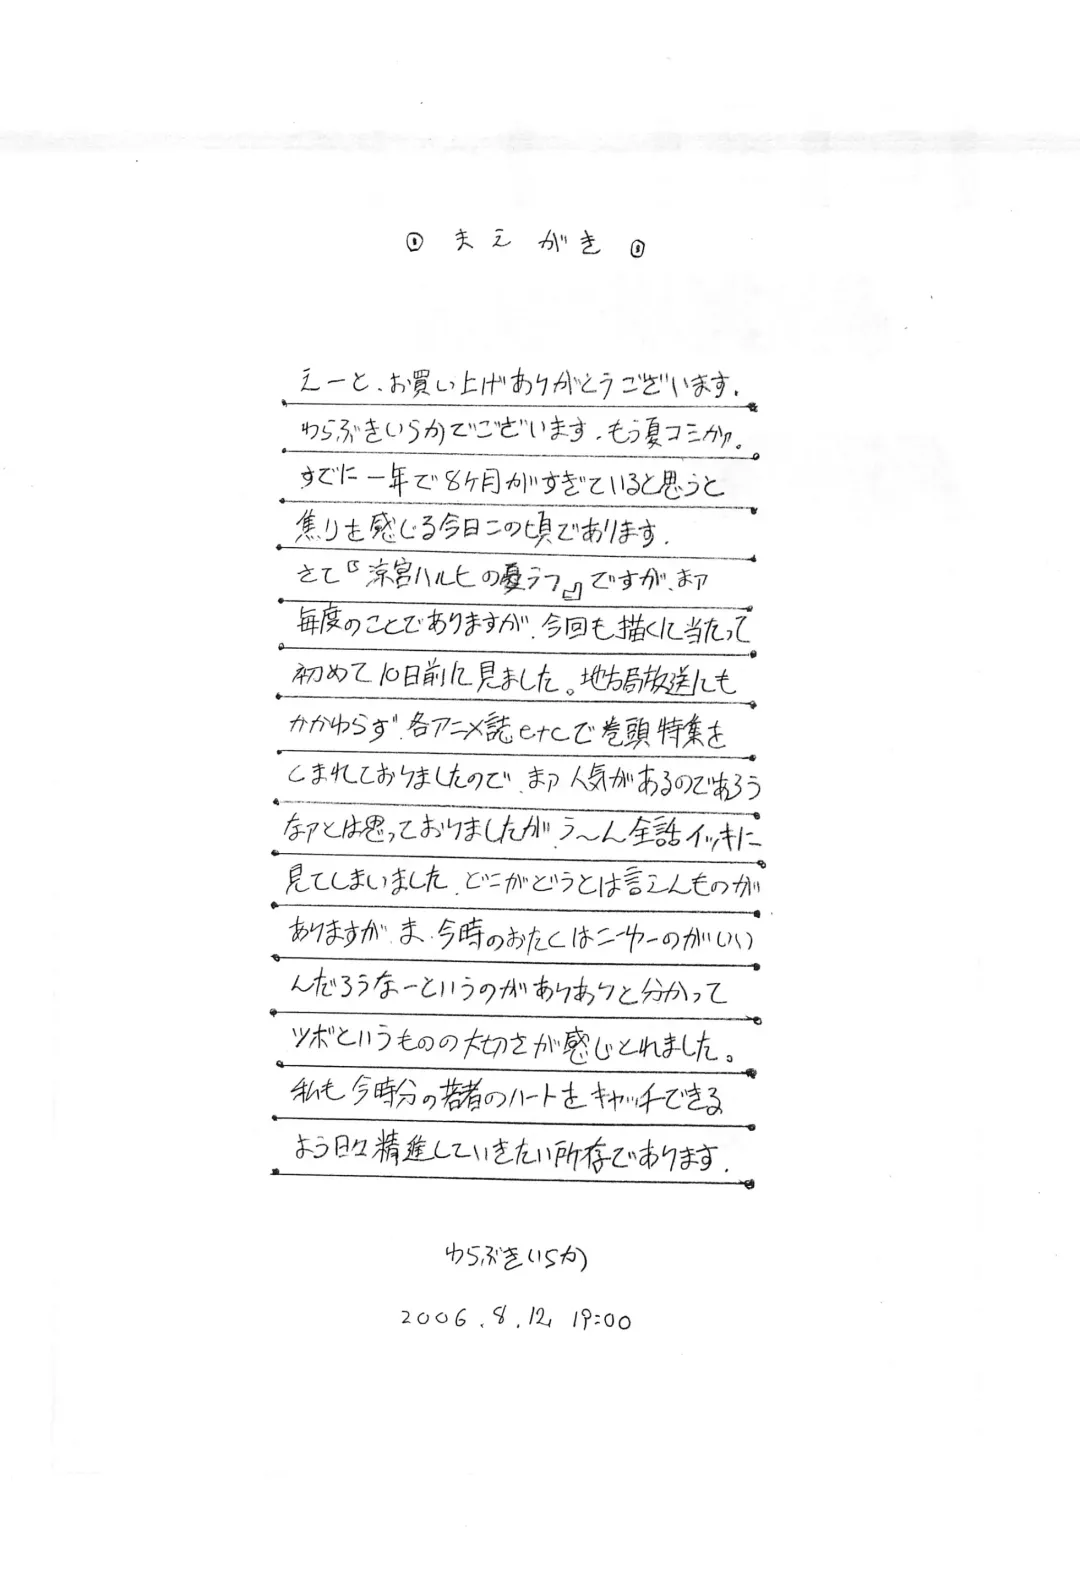 まえがき
えーと、お買い上げありがとうございます。
わらぶきいらかでございます。もう夏コミかァ。
すでに一年で8ケ月がすぎていると思うと
焦りを感じる今日この頃であります。
さて『涼宮ハルヒの憂ラフ』ですが、まァ
毎度のことでありますが、今回も描くに当たって
初めて10日前に見ました。地方局放送にも
かかわらず、各アニメ誌etcで巻頭特集を
くまれておりましたので、まァ人気があるのであろう
なァとは思っておりましたが、う〜ん全話イッキに
見てしまいました、どこがどうとは言えんものが
ありますが、ま、今時のおたくはこーゆーのがいい
んだろうなーというのがありありと分かって
ツボというものの大切さが感じとれました。
私も今時分の若者のハートをキャッチできる
よう日々精進していきたい所存であります。
わらぶきいらか
2006.8.12 19:00